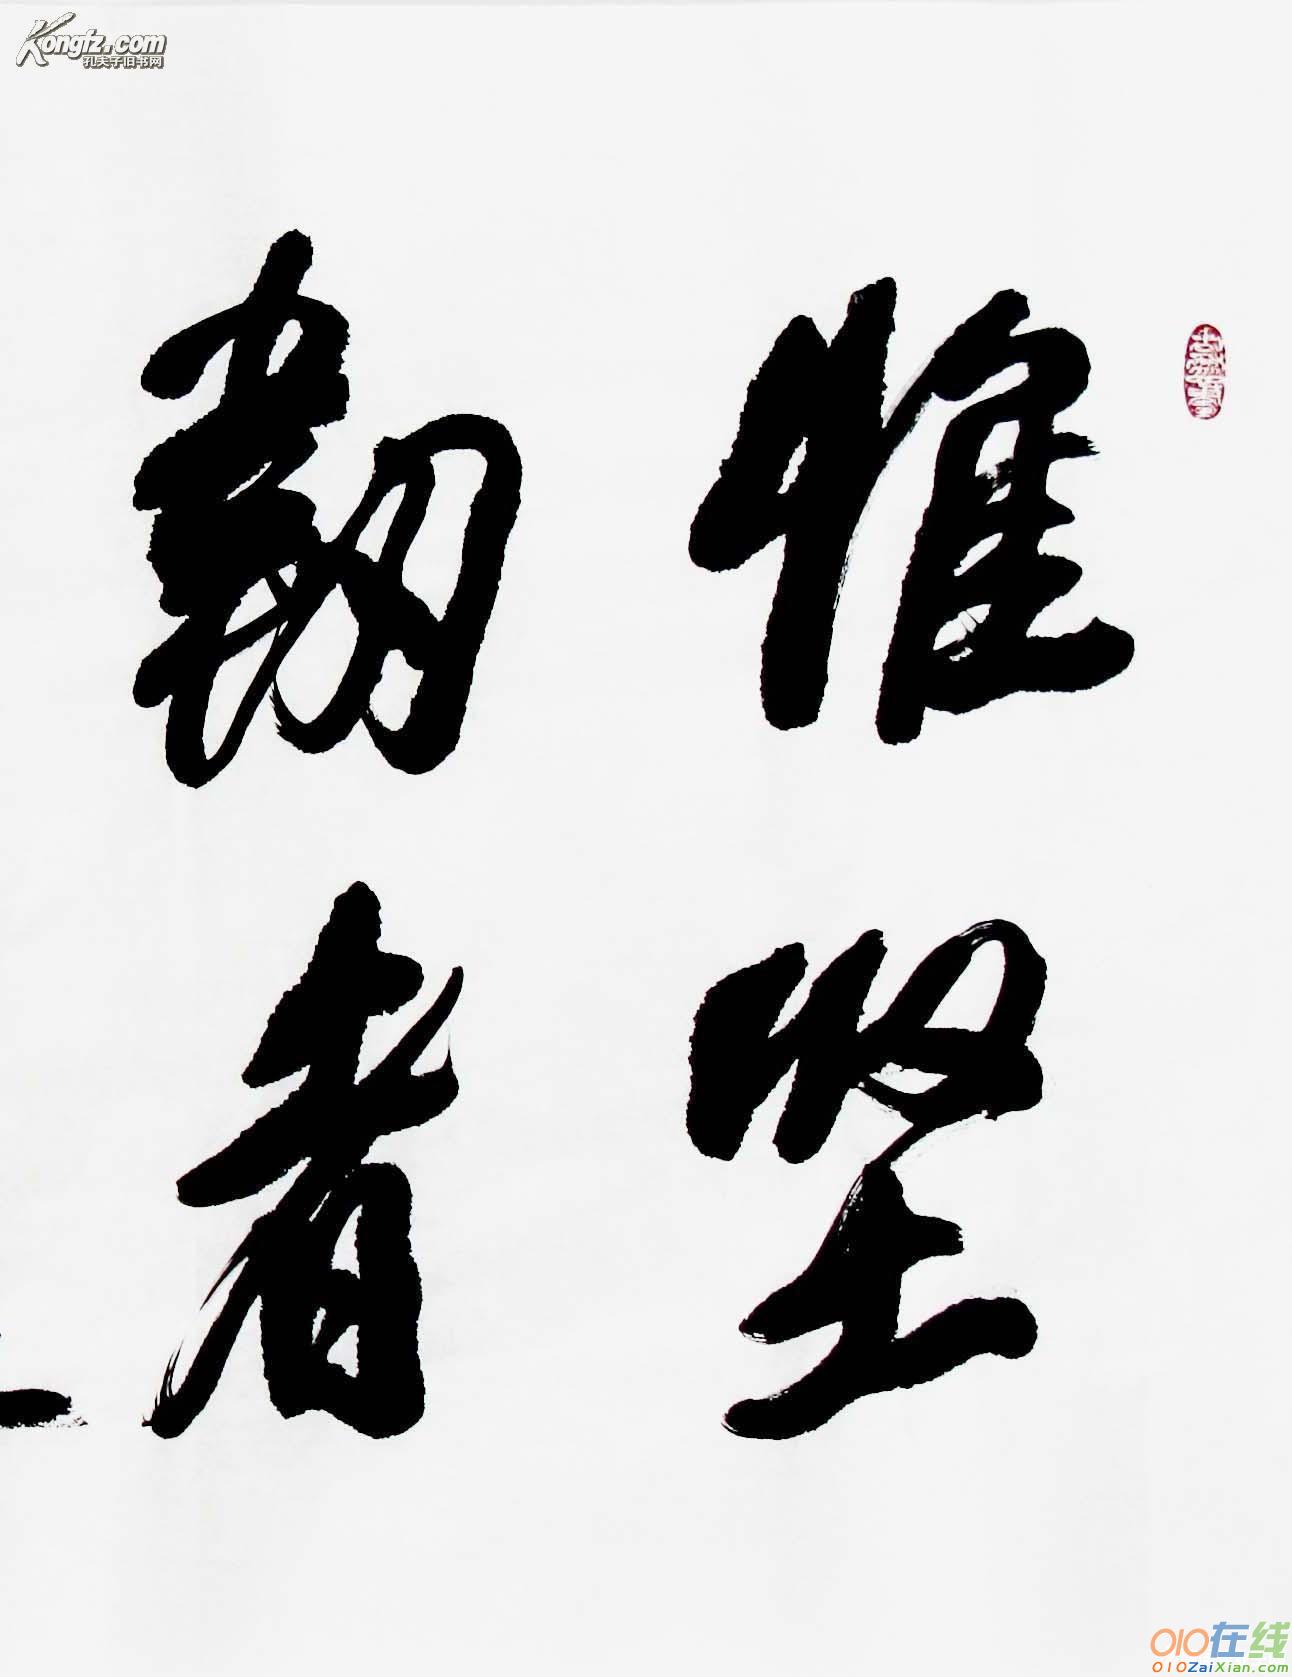 惟坚
韧者
Kongfz.com
孔夫子旧书网
010在线
010ZaiXian.com